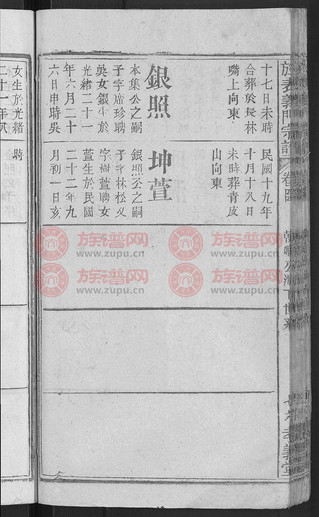 十七日未時
合葬於長林
嘴上向東
民國十九年
十月十八日
未時葬青皮
山向東
銀照
本集公之嗣
子字席珍聘
吳女銀生於
光緒二十一
年六月二十
六日申時吳
坤萱
銀照公之嗣
子字林松
字樹萱聘女
萱生於民國
二十二年九
月初一日亥
女生於光緒
二十一年
旌表義門宗譜
卷
族谱网
www.zupu.cn
族谱网
www.zupu.cn
族谱网
www.zupu.cn
族谱网
www.zupu.cn